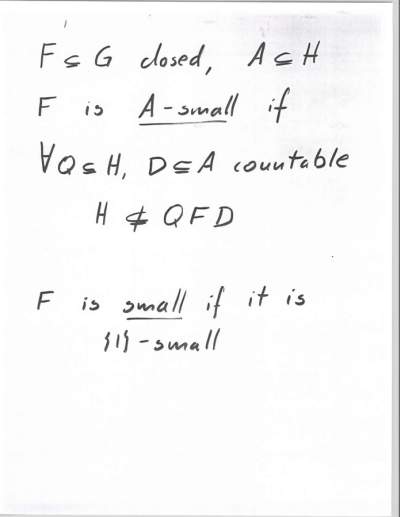 F ⊆ G closed, A ⊆ H
F is A-small if
∀Q ⊆ H, D ⊆ A countable
H ⊄ QFD
F is small if it is
{1}-small